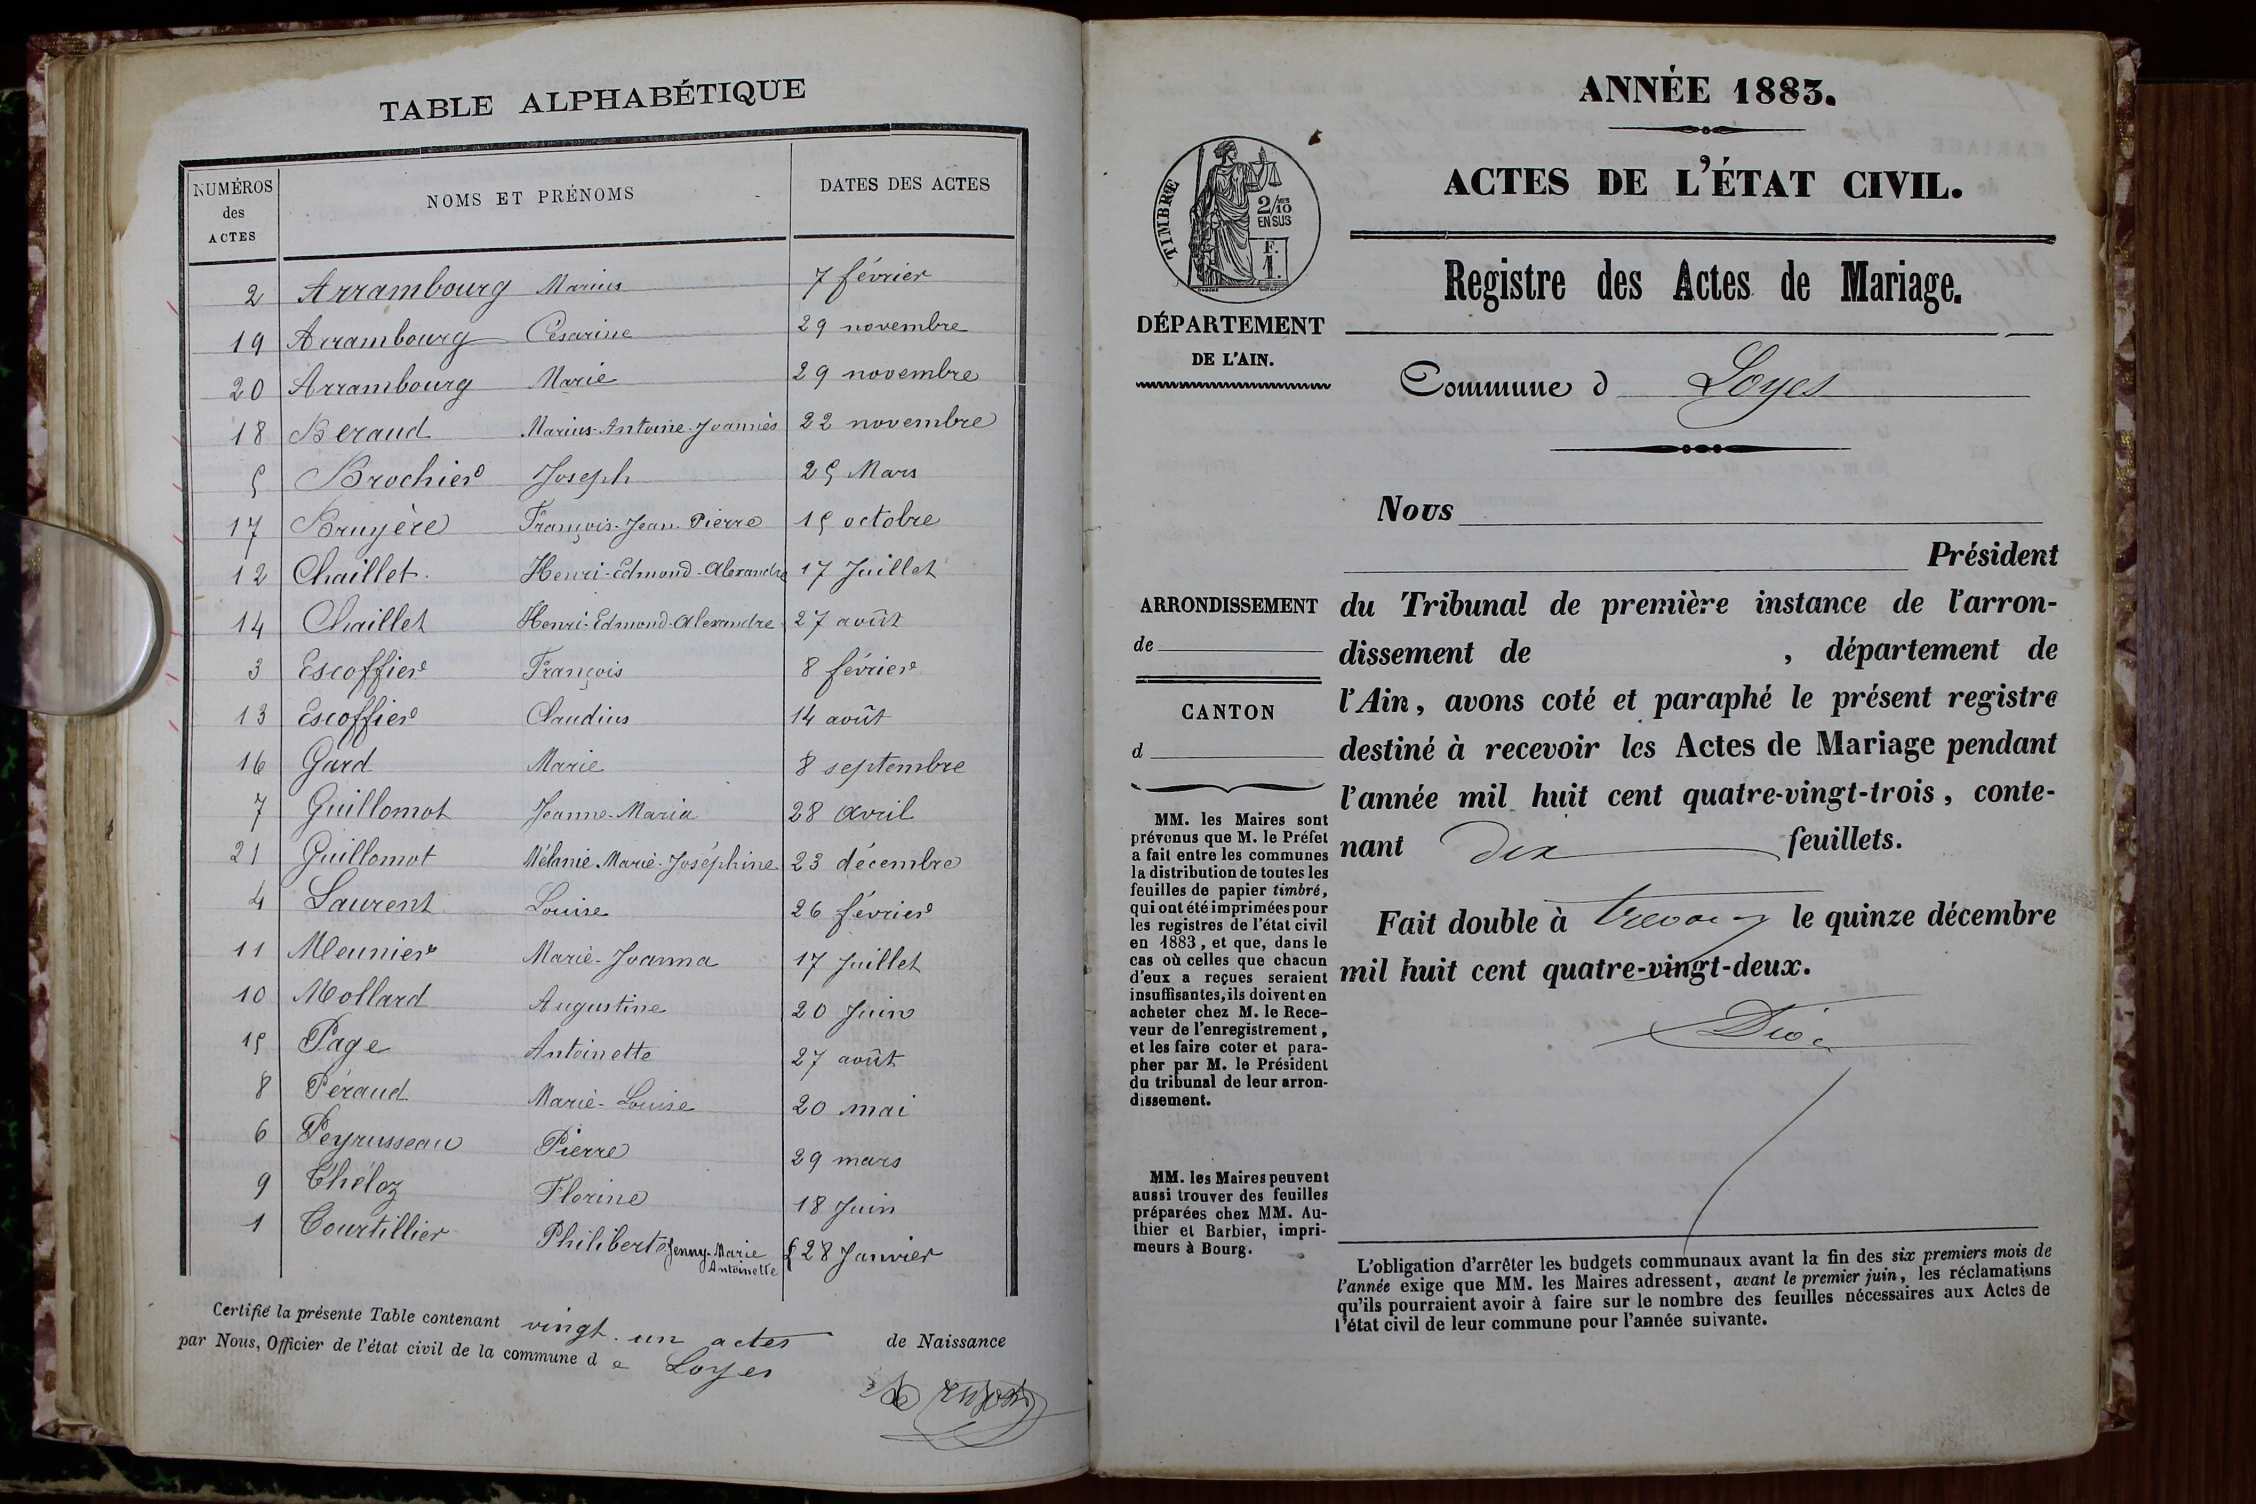 TABLE ALPHABÉTIQUE
NUMÉROS des ACTES
NOMS ET PRÉNOMS
DATES DES ACTES
2 Arrambourg Marius 7 février
19 Arrambourg Césarine 29 novembre
20 Arrambourg Marie 29 novembre
18 Beraud Marius-Antoine-Joannès 22 novembre
5 Brochier Joseph 25 Mars
17 Bruyère François-Jean-Pierre 15 octobre
12 Chaillet Henri-Edmond-Alexandre 17 Juillet
14 Chaillet Henri-Edmond-Alexandre 27 août
3 Escoffier François 8 février
13 Escoffier Claudius 14 août
16 Gard Marie 8 septembre
7 Guillomot Jeanne-Maria 28 avril
21 Guillomot Mélanie Marie-Joséphine 23 décembre
4 Laurent Louise 26 février
11 Meunier Marie-Joanna 17 Juillet
10 Mollard Augustine 20 Juin
15 Page Antoinette 27 août
8 Péraud Marie-Louise 20 mai
6 Peyrusseau Pierre 29 mars
9 Théloz Florine 18 Juin
1 Tourtillier Philiberte Jenny-Marie 28 Janvier
Antoinette
Certifié la présente Table contenant vingt-un actes de Naissance
par Nous, Officier de l'état civil de la commune de Loyes
ANNÉE 1883.
ACTES DE L'ÉTAT CIVIL.
Registre des Actes de Mariage.
Commune d Loyes
TIMBRE
2/10
EN SUS
F.
1.
DÉPARTEMENT
DE L'AIN.
ARRONDISSEMENT
de
CANTON
d
MM. les Maires sont
prévenus que M. le Préfet
a fait entre les communes
la distribution de toutes les
feuilles de papier timbré,
qui ont été imprimées pour
les registres de l'état civil
en 1883, et que, dans le
cas où celles que chacun
d'eux a reçues seraient
insuffisantes, ils doivent en
acheter chez M. le Rece-
veur de l'enregistrement,
et les faire coter et para-
pher par M. le Président
du tribunal de leur arron-
dissement.
MM. les Maires peuvent
aussi trouver des feuilles
préparées chez MM. Au-
thier et Barbier, impri-
meurs à Bourg.
Nous
Président
du Tribunal de première instance de l'arron-
dissement de , département de
l'Ain, avons coté et paraphé le présent registre
destiné à recevoir les Actes de Mariage pendant
l'année mil huit cent quatre-vingt-trois, conte-
nant dix feuillets.
Fait double à trevoux le quinze décembre
mil huit cent quatre-vingt-deux.
L'obligation d'arrêter les budgets communaux avant la fin des six premiers mois de
l'année exige que MM. les Maires adressent, avant le premier juin, les réclamations
qu'ils pourraient avoir à faire sur le nombre des feuilles nécessaires aux Actes de
l'état civil de leur commune pour l'année suivante.